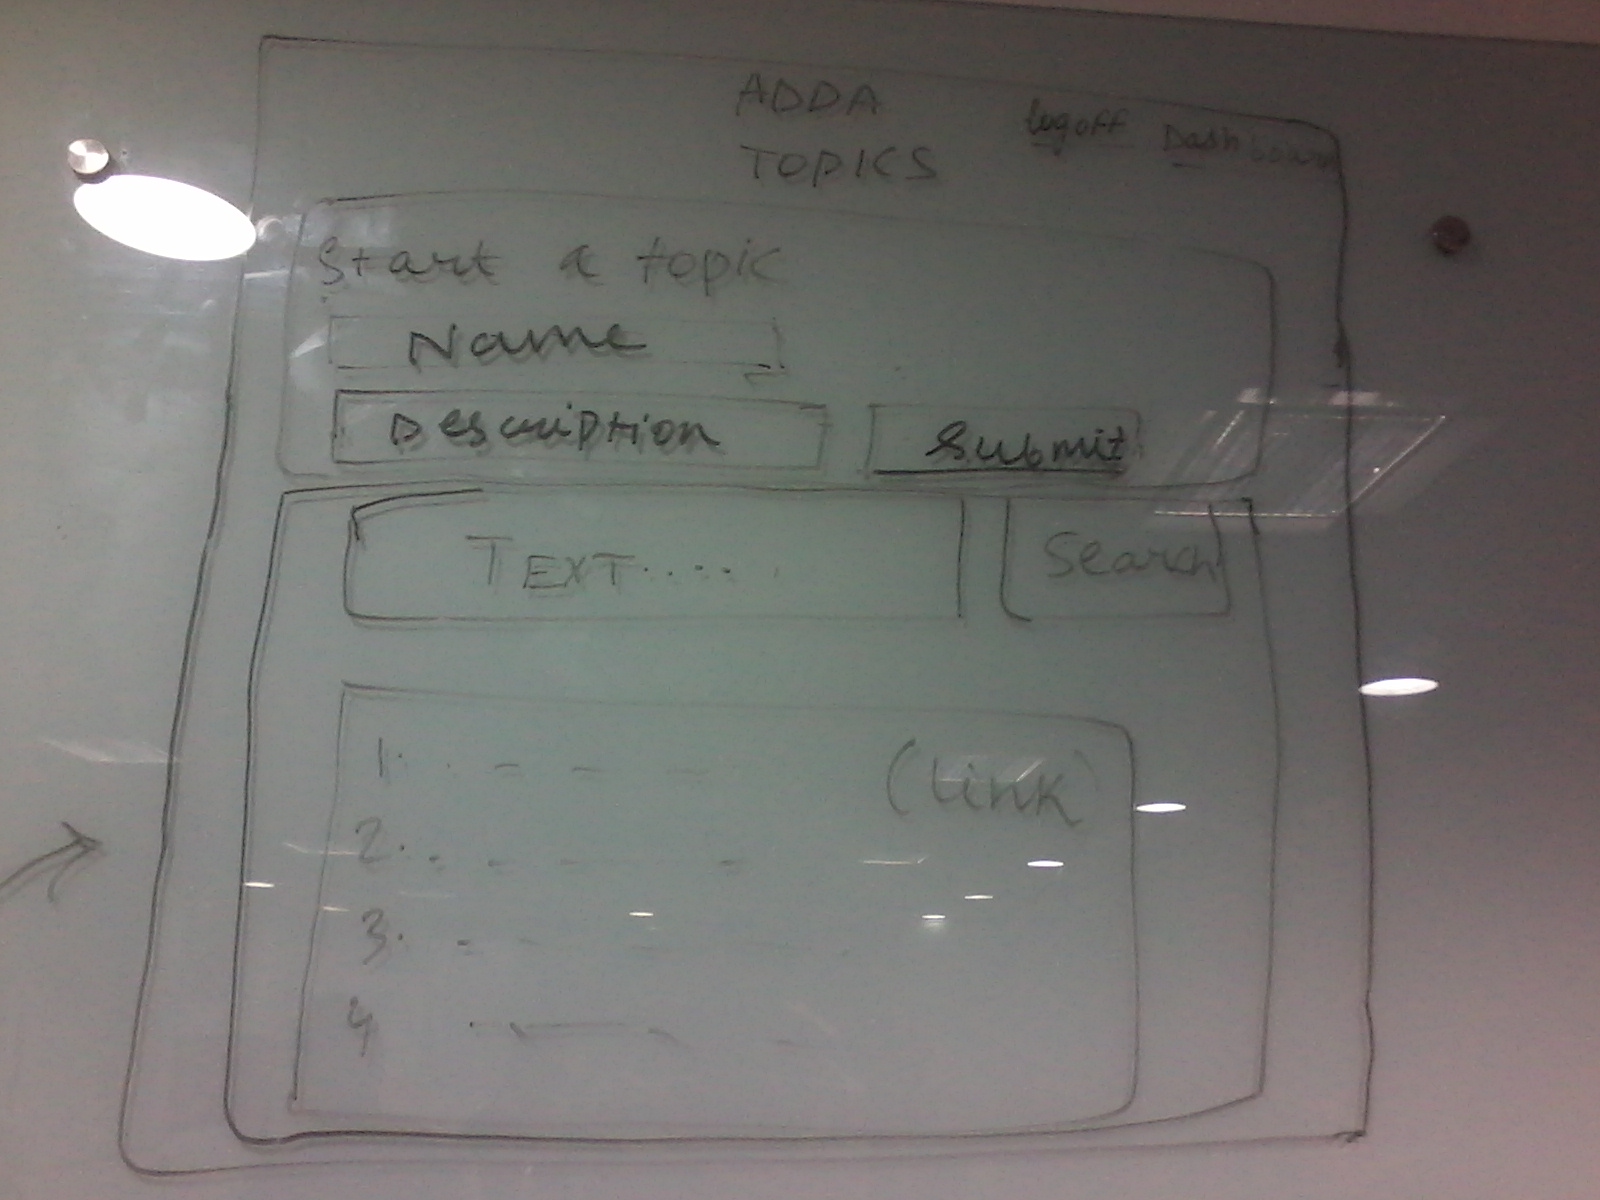 ADDA
TOPICS
Logoff Dashboard
Start a topic
Name
Description Submit
TEXT..... Search
1. (Link)
2.
3.
4